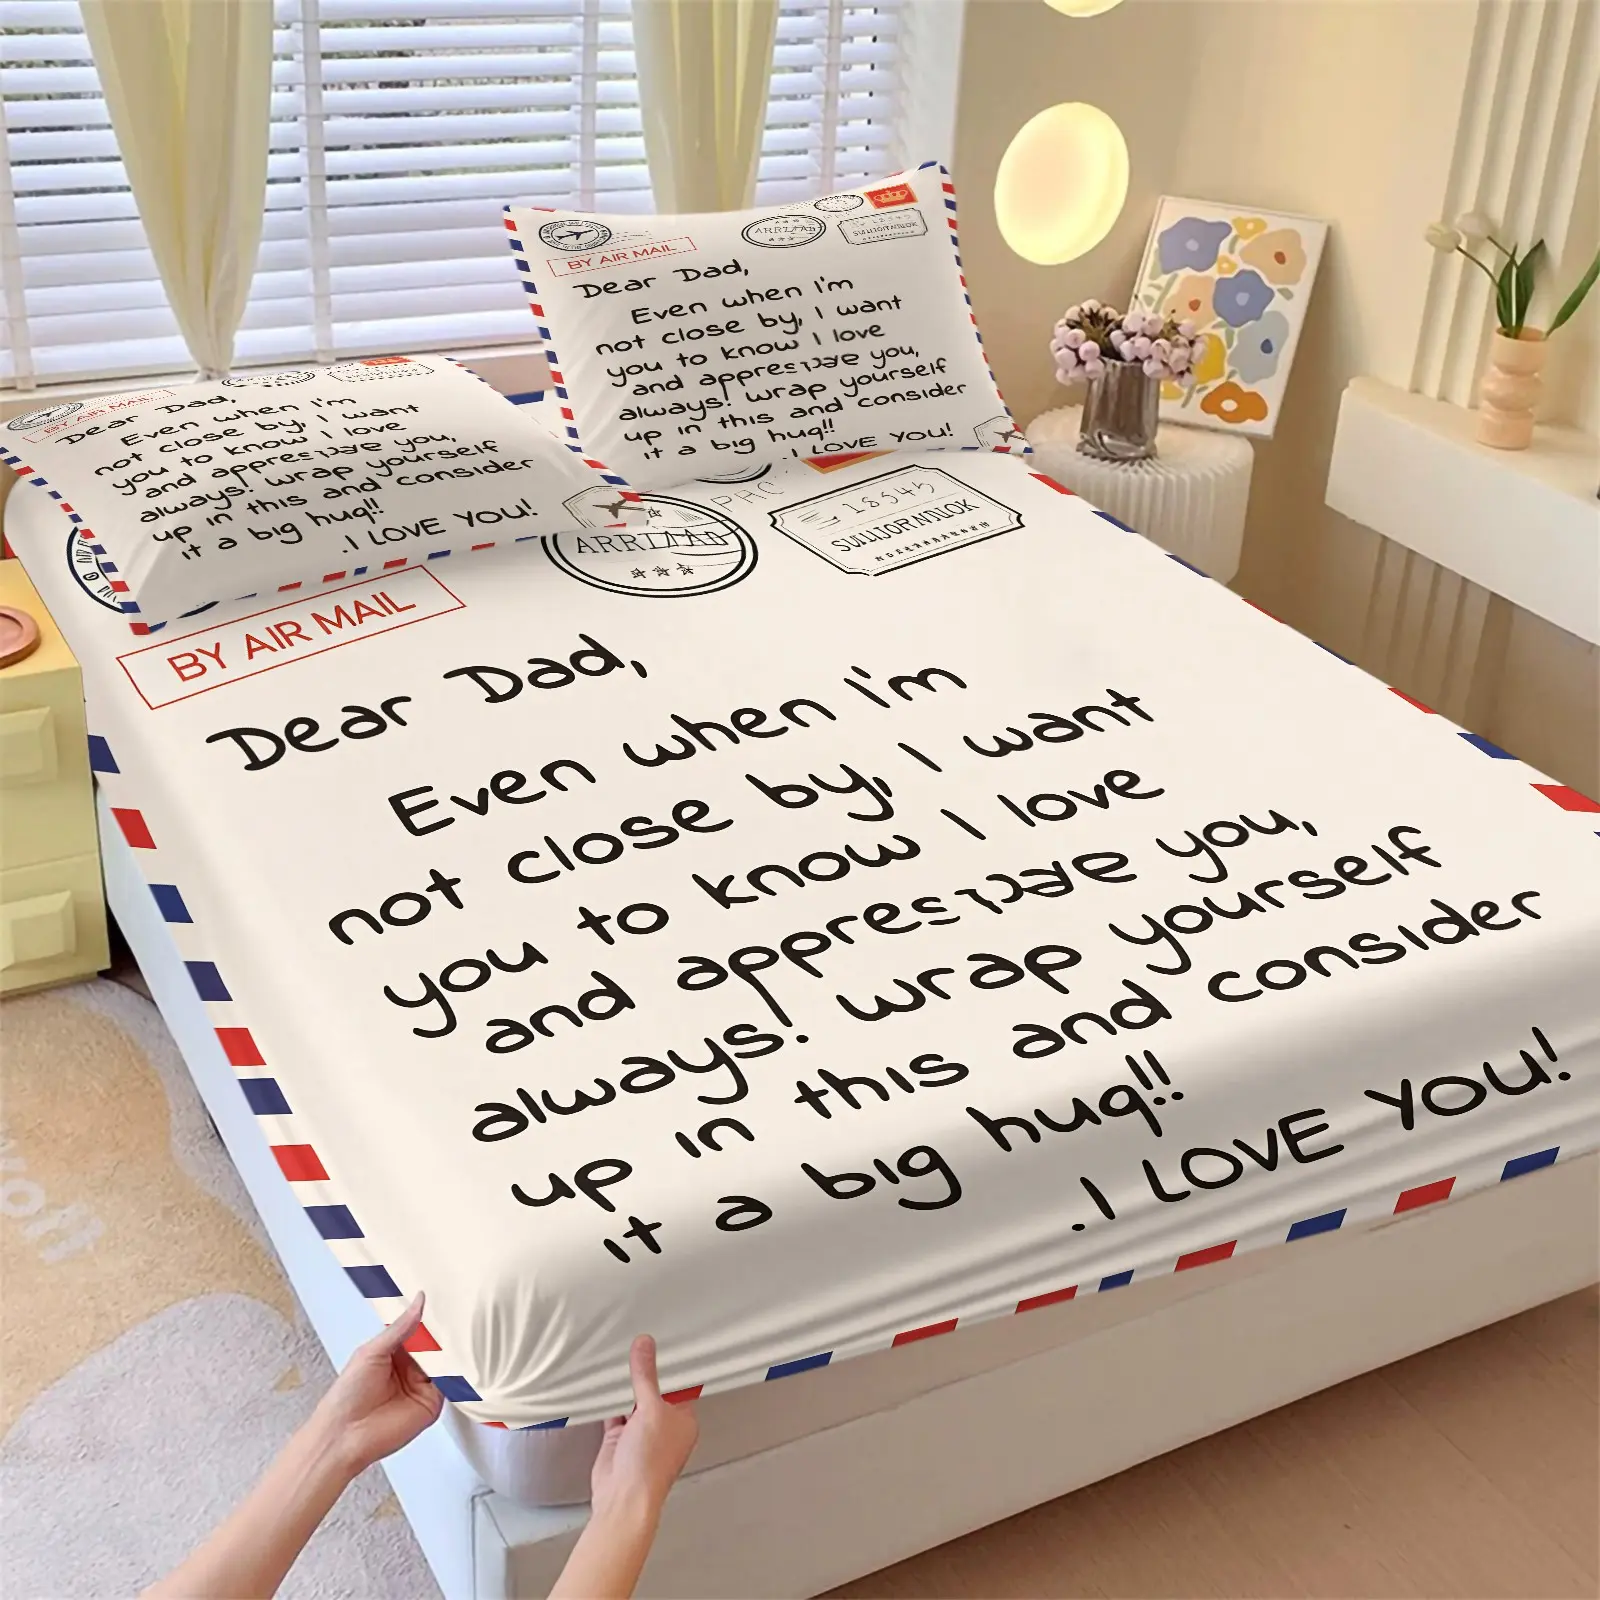 BY AIR MAIL
Dear Dad,
Even when I'm
not close by, I want
you to know I love
and
you,
always! wrap yourself
up in this and consider
it a big hug!!
.I LOVE YOU!
BY AIR MAIL
Dear Dad,
Even when I'm
not close by, I want
you to know I love
and
you,
always! wrap yourself
up in this and consider
it a big hug!!
.I LOVE YOU!
18545
BY AIR MAIL
Dear Dad,
Even when I'm
not close by, I want
you to know I love
and
you,
always! wrap yourself
up in this and consider
it a big hug!!
.I LOVE YOU!